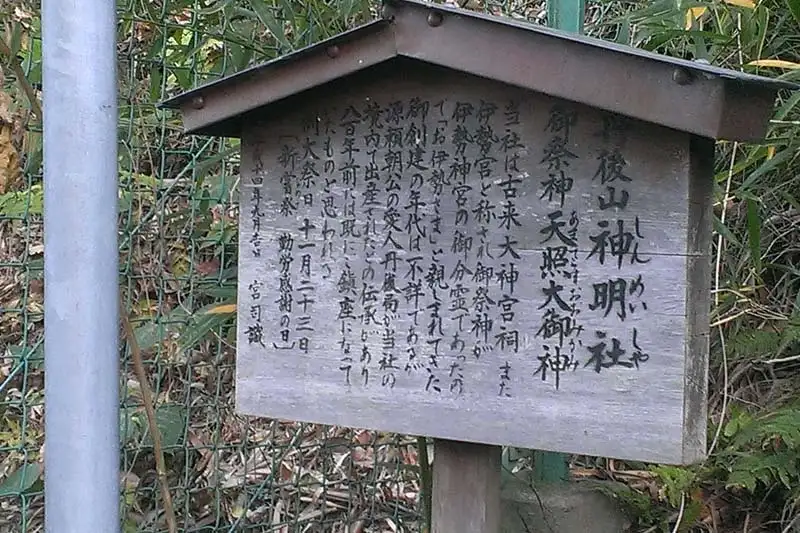 丹後山神明社
しんめいしゃ
御祭神 天照大御神
あまてらすおおみかみ
当社は古来大神宮祠また
伊勢宮と称され御祭神が
伊勢神宮の御分霊であったの
で「お伊勢さま」と親しまれてきた
御創建の年代は不詳であるが
源頼朝公の愛人丹後局が当社の
境内で出産されたとの伝承があり
八百年前には既に鎮座になって
いたものと思われる
例大祭日 十一月二十三日
「新嘗祭 勤労感謝の日」
十四年九月吉日 宮司 誠